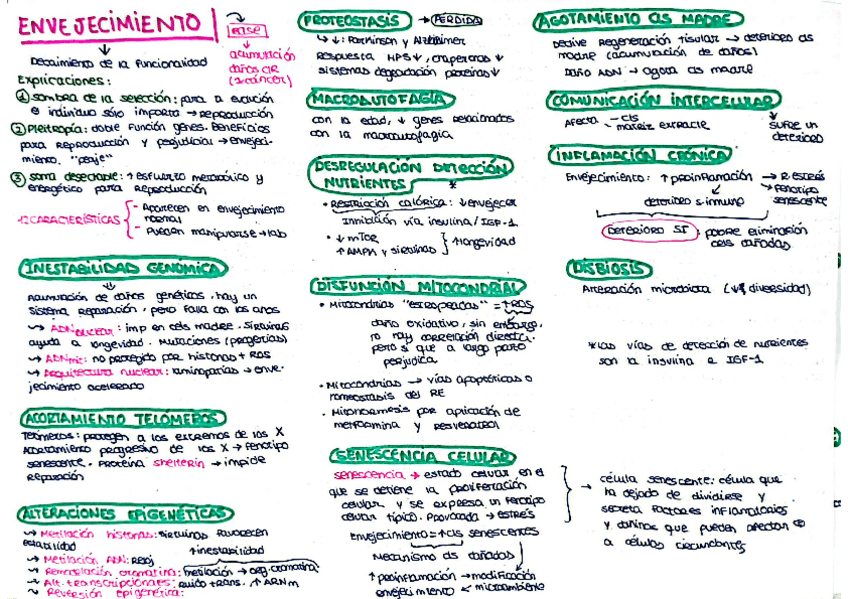 ENVEJECIMIENTO
BASE
acumulación
daños CR
(≠cáncer)
Decaimiento de la funcionalidad
Explicaciones:
① sombra de la selección: para la evolución
el individuo sólo importa → reproducción
② Pleitropía: doble función genes. Beneficios
para reproducción y perjudicial → envejeci-
miento. "peaje"
③ soma desechable: ↑ esfuerzo metabólico y
energético para Reproducción
12 CARACTERÍSTICAS
- Aparecen en envejecimiento
normal
- Puedan manipularse → lab
INESTABILIDAD GENÓMICA
Acumulación de daños genéticos, hay un
sistema reparación, pero falla con los años
↝ ADN nuclear: imp en cels madre. Sirtuinas
ayuda a longevidad. Mutaciones (progerias)
↝ ADN mit: no protegido por histonas + ROS
↝ Arquitectura nuclear: laminopatías → enve-
jecimiento acelerado
ACORTAMIENTO TELÓMEROS
Telómeros: protegen a los extremos de los X
Acortamiento progresivo de los X → fenotipo
senescente. Proteína shelterin → impide
reparación
ALTERACIONES EPIGENÉTICAS
↝ Metilación histonas: sirtuinas favorecen
estabilidad
↑ inestabilidad
↝ Metilación ADN: Reloj
↝ Remodelación cromatina: metilación → org. cromatina
↝ Alt. transcripcionales: ruido trans. ↑ ARNm
↝ Reversión epigenética:
PROTEOSTASIS → PÉRDIDA
↳ ↓: Parkinson y Alzheimer
Respuesta HPS ↓, chaperonas ↓
sistemas degradación proteínas ↓
MACROAUTOFAGIA
con la edad, ↓ genes relacionados
con la macroautofagia.
DESREGULACIÓN DETECCIÓN
NUTRIENTES *
• Restricción calórica: ↓ envejecer
Inhibición vía insulina/IGF-1
• ↓ mTOR
↑ AMPK y sirtuinas } ↑ longevidad
DISFUNCIÓN MITOCONDRIAL
• Mitocondrias "estropeadas" = ↑ROS
daño oxidativo, sin embargo,
no hay correlación directa,
pero sí que a largo plazo
perjudica
• Mitocondrias → vías apoptóticas o
homeostasis del RE
• Mitohormesis por aplicación de
metformina y resveratrol
SENESCENCIA CELULAR
senescencia → estado celular en el
que se detiene la proliferación
celular y se expresa un fenotipo
celular típico. Provocada → estrés
Envejecimiento = ↑ cls senescentes
Mecanismo ds dañadas
↑ proinflamación → modificación
envejecimiento ← microambiente
AGOTAMIENTO cls MADRE
Declive regeneración tisular → deterioro cls
madre (acumulación de daños)
Daño ADN → agota cls madre
COMUNICACIÓN INTERCELULAR
Afecta - cls
- matriz extracle
SUFRE un
deterioro
INFLAMACIÓN CRÓNICA
Envejecimiento: ↑ proinflamación → R. Estrés
→ fenotipo
senescente
deterioro s. inmuno
DETERIORO SI: pobre eliminación
cels dañadas
DISBIOSIS
Alteración microbiota (↓ diversidad)
*Las vías de detección de nutrientes
son la insulina e IGF-1
→ célula senescente: célula que
ha dejado de dividirse y
secreta factores inflamatorios
y dañinos que pueden afectar
a células circundantes